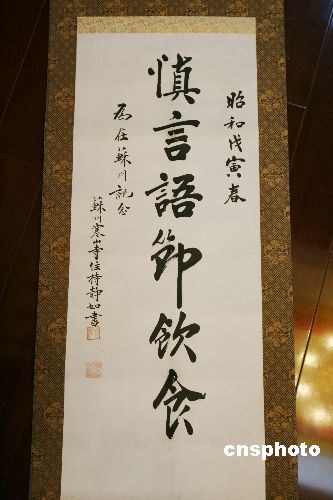 昭和戊寅春
慎言語節飲食
為住蘇州記念
蘇州寒山寺住持靜如書
cnsphoto